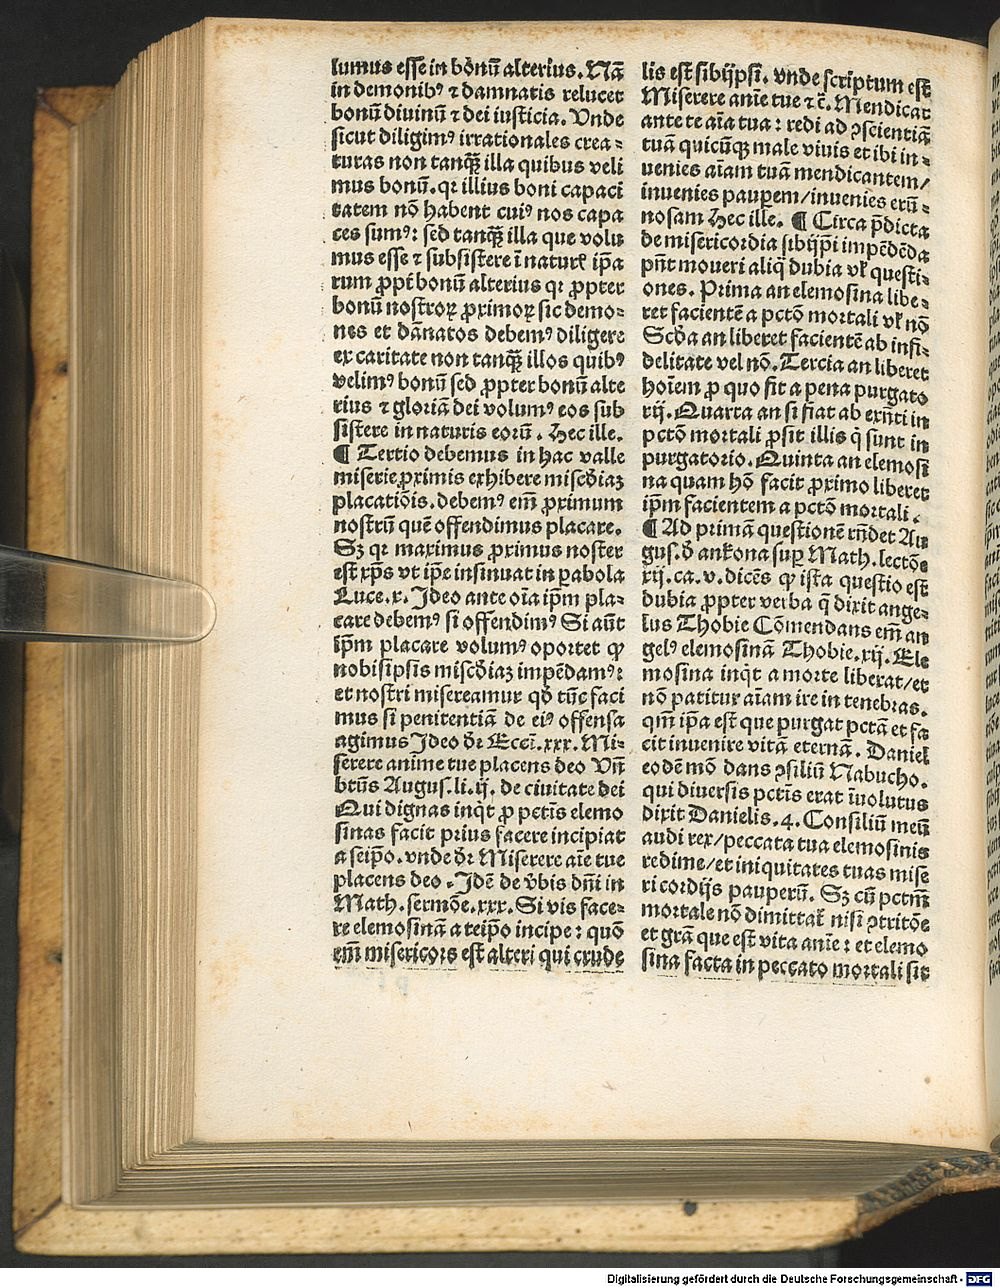 lumus esse in bonū alterius. Nā
in demonib⁹ ⁊ damnatis relucet
bonū diuinū ⁊ dei iusticia. Vnde
sicut diligim⁹ irrationales crea-
turas non tanqȝ illa quibus veli
mus bonū. qꝛ illius boni capaci
tatem nō habent cui⁹ nos capa
ces sum⁹: sed tanqȝ illa que volu
mus esse ⁊ subsistere ī naturꝭ ip̄a
rum ꝓpt̄ bonū alterius qꝛ ꝓpter
bonū nostroꝝ ꝓximoꝝ sic demo-
nes et dānatos debem⁹ diligere
ex caritate non tanqȝ illos quib⁹
velim⁹ bonū sed ꝓpter bonū alte
rius ⁊ gloriā dei volum⁹ eos sub
sistere in naturis eorū. Hec ille.
¶ Tertio debemus in hac valle
miserie ꝓximis exhibere misc̄diaȝ
placatiōis. debem⁹ em̄ ꝓximum
nostrū quē offendimus placare.
Sȝ qꝛ maximus ꝓximus noster
est xp̄s vt ip̄e insinuat in ꝑabola
Luce.x. Ideo ante oīa ip̄m pla-
care debem⁹ si offendim⁹ Si aūt
ip̄m placare volum⁹ oportet ꝙ
nobisip̄sis misc̄diaȝ impēdam⁹:
et nostri misereamur qd̄ tūc faci
mus si penitentiā de ei⁹ offensa
agimus Ideo dꝛ Eccī.xxx. Mi-
serere anime tue placens deo Vn̄
btūs Augus. li.ij. de ciuitate dei
Qui dignas inqͥt ꝓ pctīs elemo
sinas facit prius facere incipiat
a seip̄o. vnde dꝛ Miserere aīe tue
placens deo. Idē de v̄bis dn̄i in
Math. sermōe.xxx. Si vis face-
re elemosinā a teip̄o incipe: quō
em̄ misericors est alteri qui crude
lis est sibijpsi. vnde scriptum est
Miserere anīe tue ⁊ c̄. Mendicat
ante te aīa tua: redi ad ꝯscientiā
tuā quicūqȝ male viuis et ibi in-
uenies aīam tuā mendicantem/
inuenies pauꝑem/inuenies erū-
nosam Hec ille. ¶ Circa p̄dicta
de misericordia sibijp̄i impēdēda
pn̄t moueri aliq̄ dubia vl̕ questi-
ones. Prima an elemosina libe-
ret facientē a pctō mortali vl̕ nō
Scd̄a an liberet facientē ab infi-
delitate vel nō. Tercia an liberet
hoīem ꝓ quo fit a pena purgato
rij. Quarta an si fiat ab exn̄ti in
pctō mortali ꝓsit illis qͥ sunt in
purgatorio. Quinta an elemosi
na quam hō facit ꝓximo liberet
ip̄m facientem a pctō mortali.
¶ Ad primā questionē rn̄det Au
gus. d̄ ankona suꝑ Math. lectōe
xij. ca. v. dicēs ꝙ ista questio est
dubia ꝓpter verba q̄ dixit ange-
lus Thobie Cōmendans em̄ an
gel⁹ elemosinā Thobie.xij. Ele
mosina inqͥt a morte liberat/et
nō patitur aīam ire in tenebras.
qm̄ ip̄a est que purgat pctā et fa
cit inuenire vitā eternā. Daniel
eodē mō dans ꝯsiliū Nabucho.
qui diuersis pctīs erat īuolutus
dixit Danielis. 4. Consiliū meū
audi rex/peccata tua elemosinis
redime/et iniquitates tuas mise
ricordijs pauperū. Sȝ cū pctm̄
mortale nō dimittat̕ nisi ꝯtritōe
et gr̄a que est vita anīe: et elemo
sina facta in peccato mortali sit
Digitalisierung gefördert durch die Deutsche Forschungsgemeinschaft - DFG